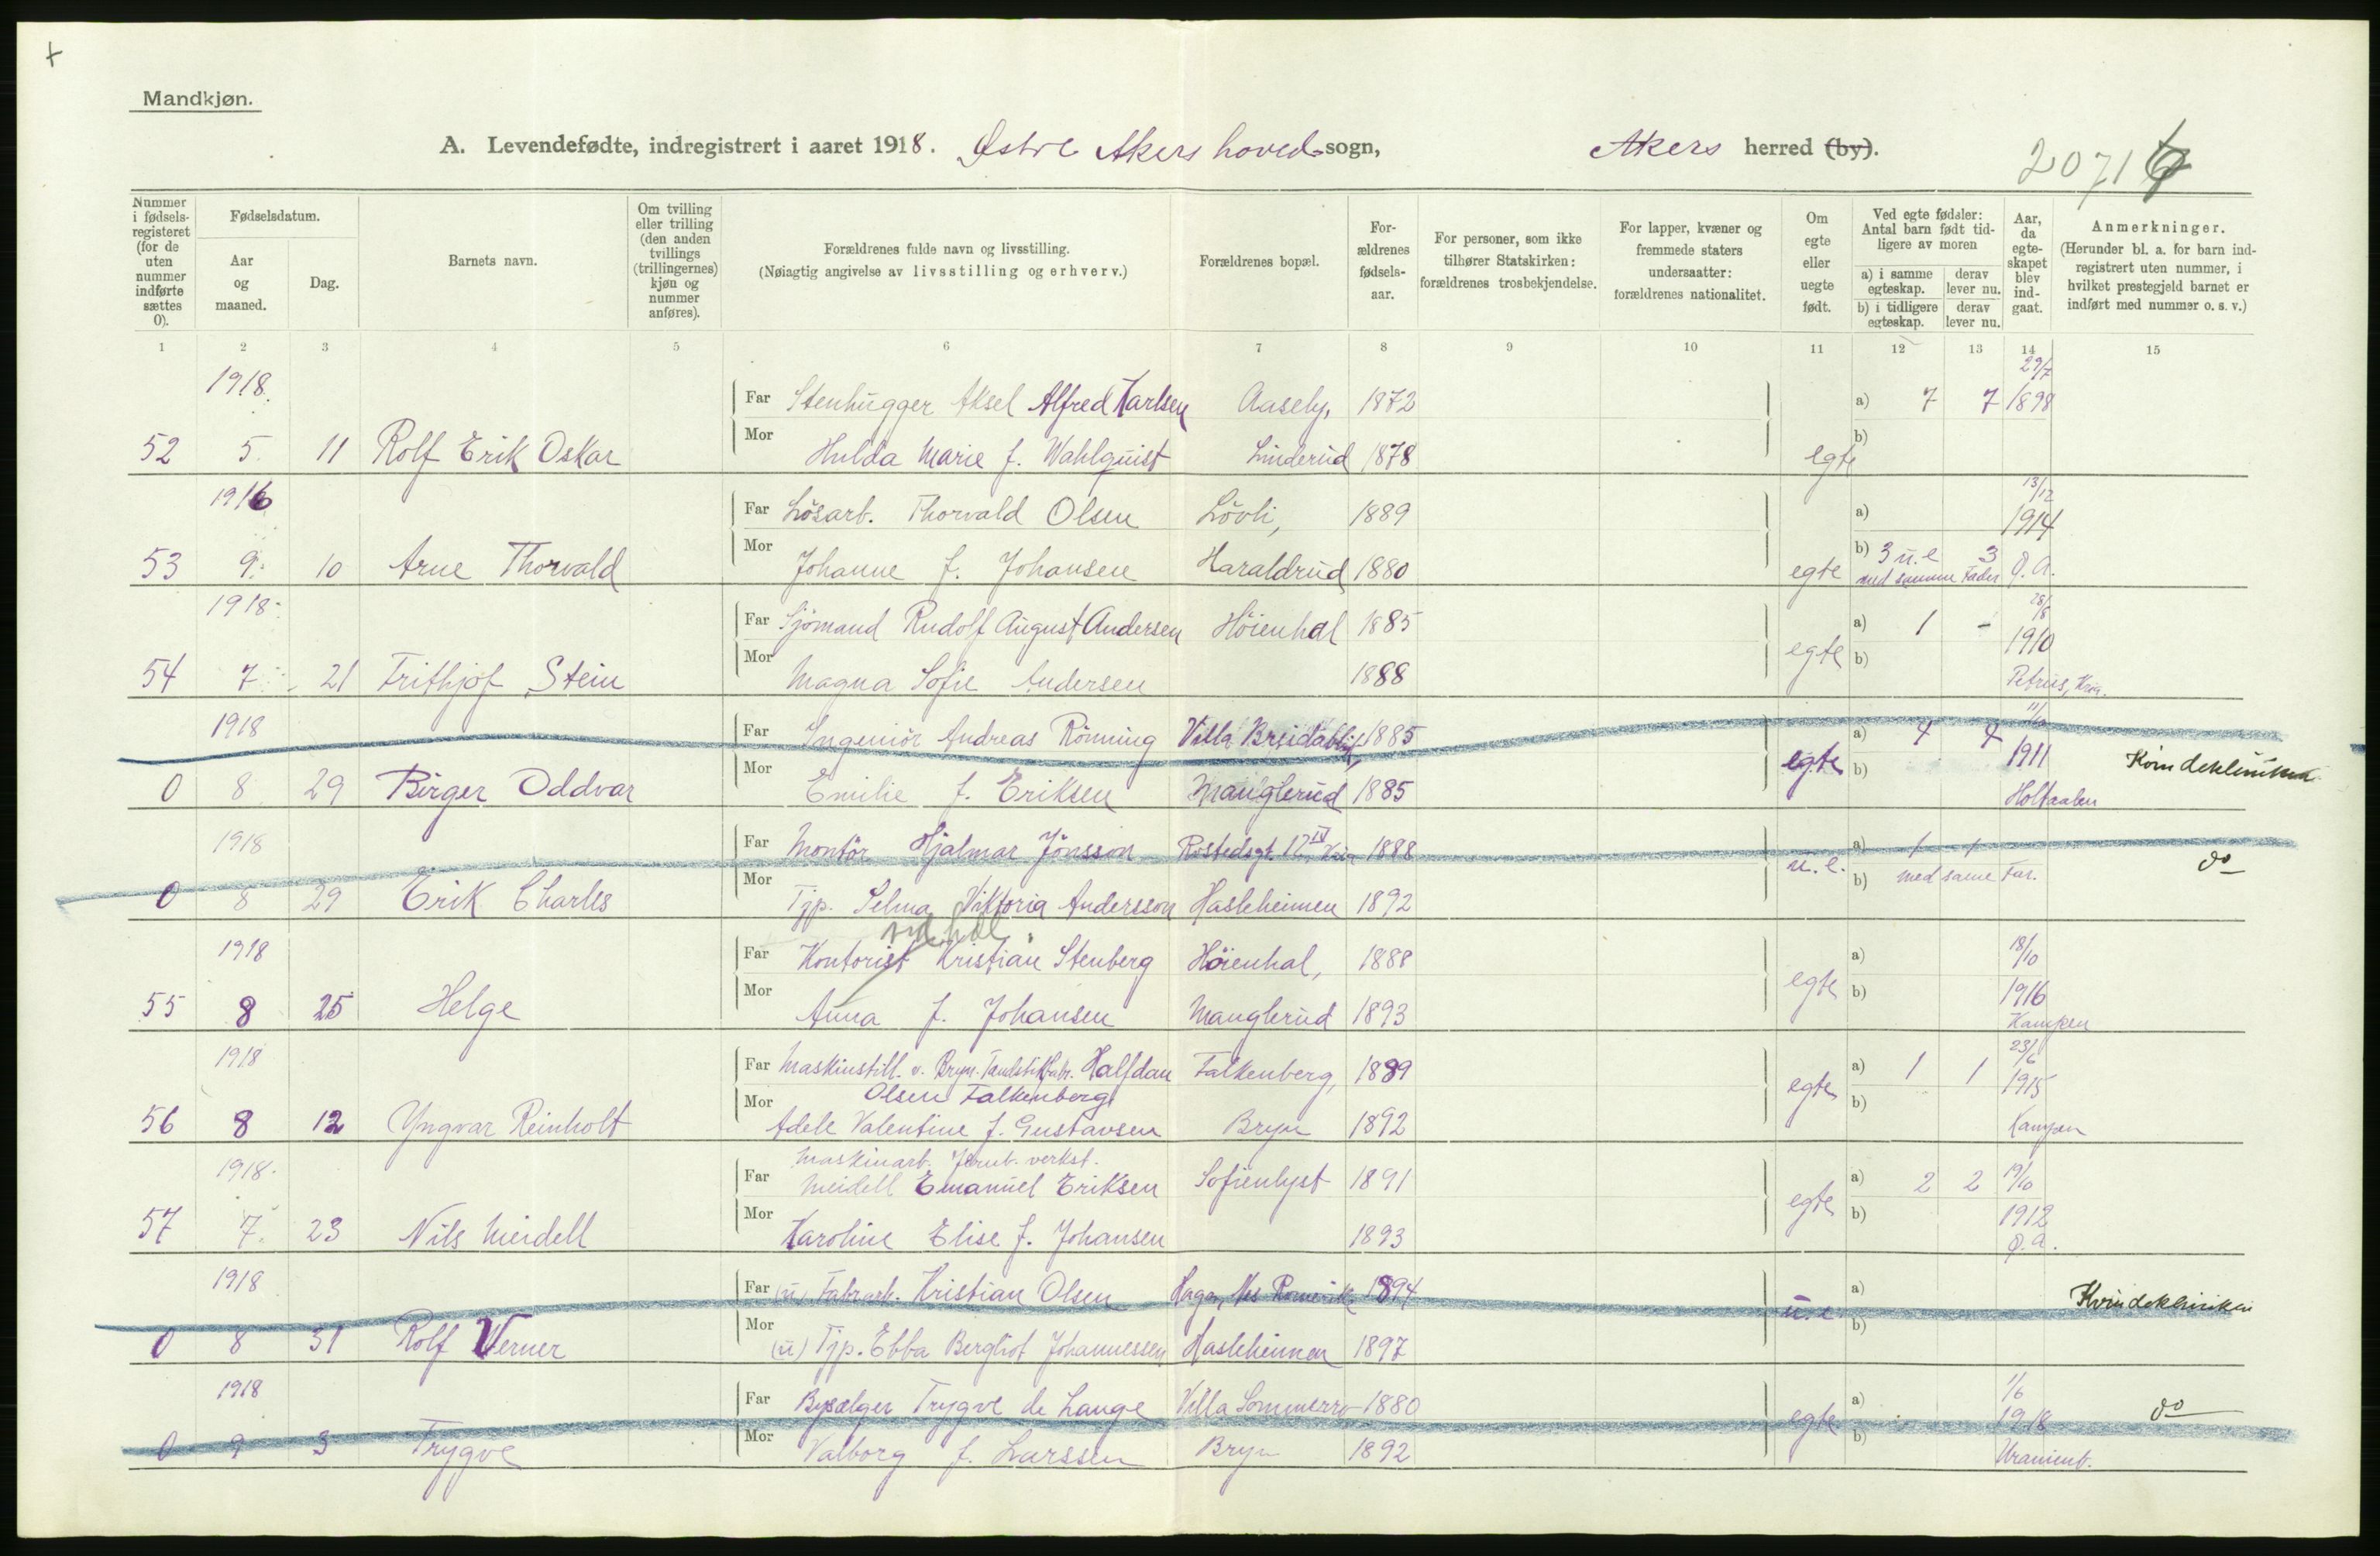 Mandkjøn.
A. Levendefødte, indregistrert i aaret 1918. Østre Akers hoved-sogn, Akers herred (by).
2071
Nummer i fødsels-registeret (for de uten nummer indførte sættes 0).
Fødselsdatum.
Aar og maaned.
Dag.
Barnets navn.
Om tvilling eller trilling (den anden tvillings (trillingernes) kjøn og nummer anføres).
Forældrenes fulde navn og livsstilling.
(Nøiagtig angivelse av livsstilling og erhverv.)
Forældrenes bopæl.
For-ældrenes fødsels-aar.
For personer, som ikke tilhører Statskirken: forældrenes trosbekjendelse.
For lapper, kvæner og fremmede staters undersaatter: forældrenes nationalitet.
Om egte eller uegte født.
Ved egte fødsler: Antal barn født tid-ligere av moren
a) i samme egteskap. derav lever nu.
b) i tidligere egteskap. derav lever nu.
Aar, da egte-skapet blev ind-gaat.
Anmerkninger.
(Herunder bl. a. for barn ind-registrert uten nummer, i hvilket prestegjeld barnet er indført med nummer o. s. v.)
1 2 3 4 5 6 7 8 9 10 11 12 13 14 15
1918. 29/7
Far Stenhugger Aksel Alfred Karlsen Aasely, 1872 a) 7 7 1898
52 5. 11 Rolf Erik Oskar Mor Hulda Marie f. Wahlquist Linderud 1878 egte b)
1916 13/12
Far Løsarb. Thorvald Olsen Løvli, 1889 a) 1914
53 9. 10 Arne Thorvald Mor Johanne f. Johansen Haraldrud 1880 egte b) 3 u.e 3 Ø.A.
med samme Fader
1918. 28/8
Far Sjömand Rudolf August Andersen Höienhal 1885 a) 1 - 1910
54 7. 21 Frithjof Stein Mor Magna Sofie Andersen 1888 egte b) Petrus, Kria.
1918 11/10
Far Ingeniör Andreas Rönning Villa Breidablik, 1885 a) 4 4 1911
0 8 29 Birger Oddvar Mor Emilie f. Eriksen Manglerud 1885 egte b) Holtaalen Kvindekliniken
1918
Far Montör Hjalmar Jönsson Rostedsgt. 12 IV Kria 1888 a) 1 1 do
0 8 29 Erik Charles Mor Tjp. Selma Viktoria Andersson Hasleheimen 1892 u.e. b) med same Far.
1918 18/10
Far Kontorist Kristian Stenberg Höienhal, 1888 a) 1916
55 8 25 Helge Mor Anna f. Johansen Manglerud 1893 egte b) Kampen
1918 23/6
Far Maskinstill. v. Bryn Tændstikfabr. Halfdan Falkenberg, 1889 a) 1 1 1915
Olsen Falkenberg
56 8 12 Yngvar Reinholt Mor Adele Valentine f. Gustavsen Bryn 1892 egte b) Kampen
1918. Maskinarb. Jernb. verkst.
Far Meidell Emanuel Eriksen Sofienlyst 1891 a) 2 2 19/10
57 7. 23 Nils Meidell Mor Karoline Elise f. Johansen 1893 egte b) 1912
Ø.A.
1918
Far (u) Fabrarb. Kristian Olsen Hagan, Nes Romerike 1894 a) Kvindekliniken
0 8 31 Rolf Verner Mor (u) Tjp. Ebba Bergliot Johannessen Hasleheimen 1897 u.e. b)
1918 1/6
Far Bysælger Trygve de Lange Villa Sommerro 1880 a) 1918 do
0 9 3 Trygve Mor Valborg f. Larssen Bryn 1892 egte b) Uranienb.